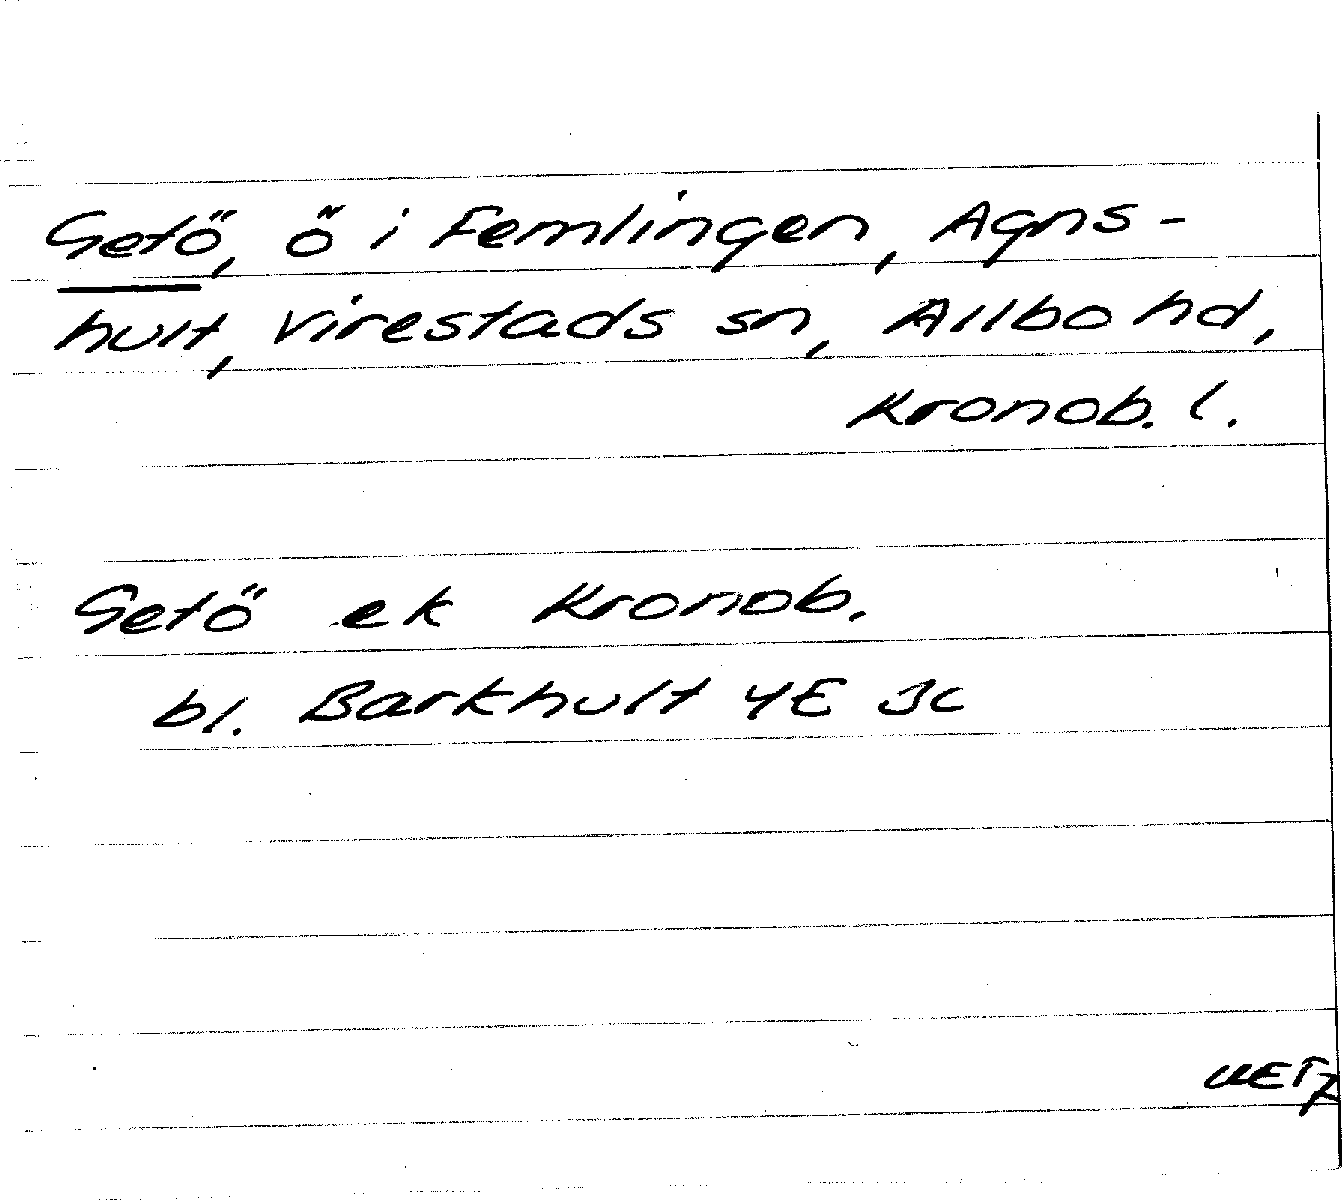 Getö, ö i Femlingen, Agns-
hult, Virestads sn, Allbo hd,
Kronob. l.
Getö ek Kronob.
bl. Barkhult 4E 3c